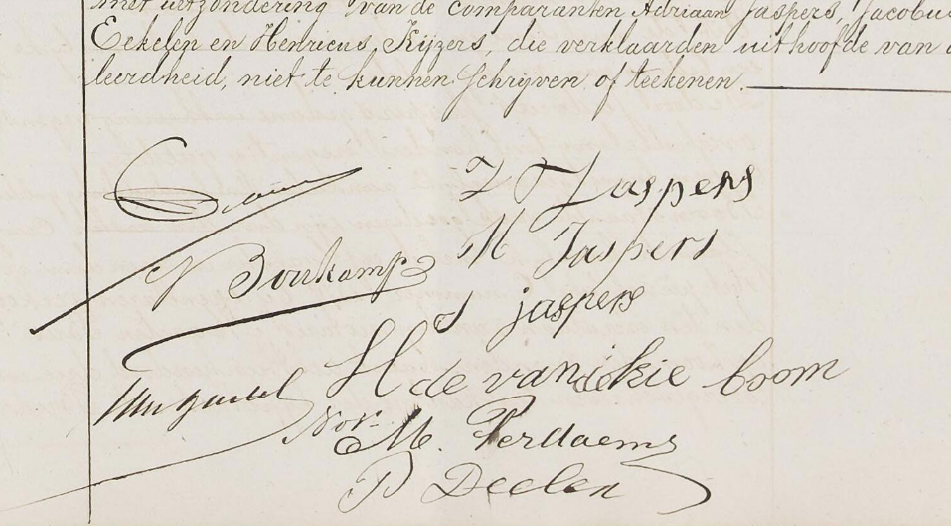 met uitzondering van de comparanten Adriaan Jaspers, Jacobu
Eekelen en Henricus Kijzers, die verklaarden uit hoofde van
leerdheid, niet te kunnen schrijven of teekenen.
J Jaspers
N Bonkamp
M Jaspers
J jaspers
H de van
boom
Not.
M. Perdaems
P Deelen